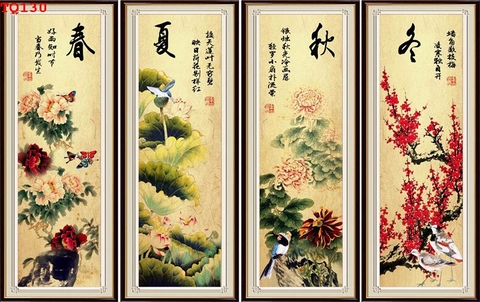 YQ130
春
好雨知时节
当春乃发生
夏
接天莲叶无穷碧
映日荷花别样红
秋
银烛秋光冷画屏
轻罗小扇扑流萤
冬
墙角数枝梅
凌寒独自开